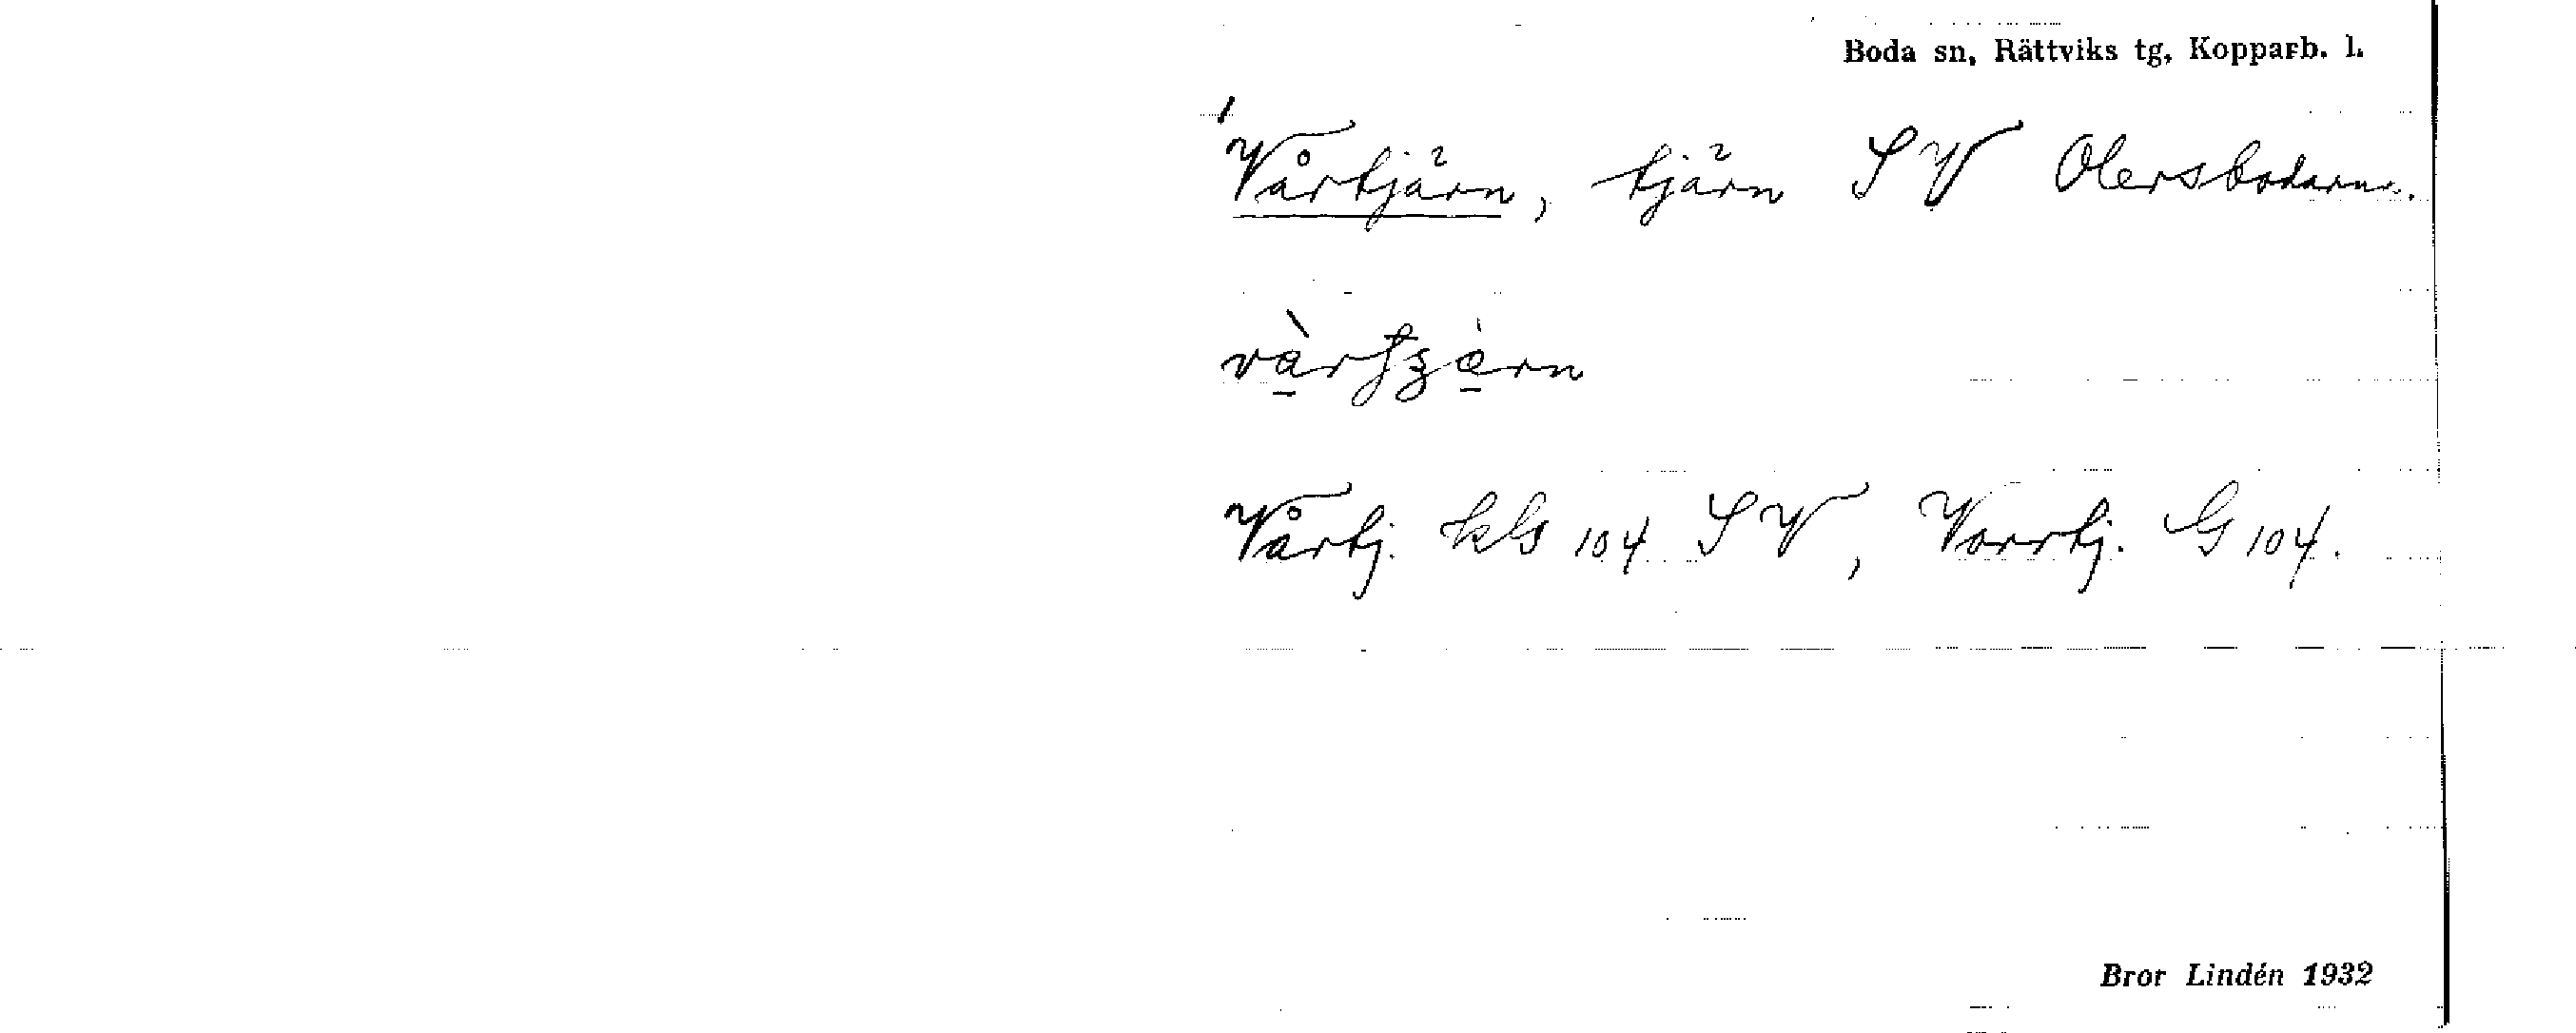 Boda sn, Rättviks tg, Kopparb. l.
Vårtjärn, tjärn SV Olersbodarna.
Vårtj. kls 104 SV, Vorrtj. G 104.
Bror Lindén 1932